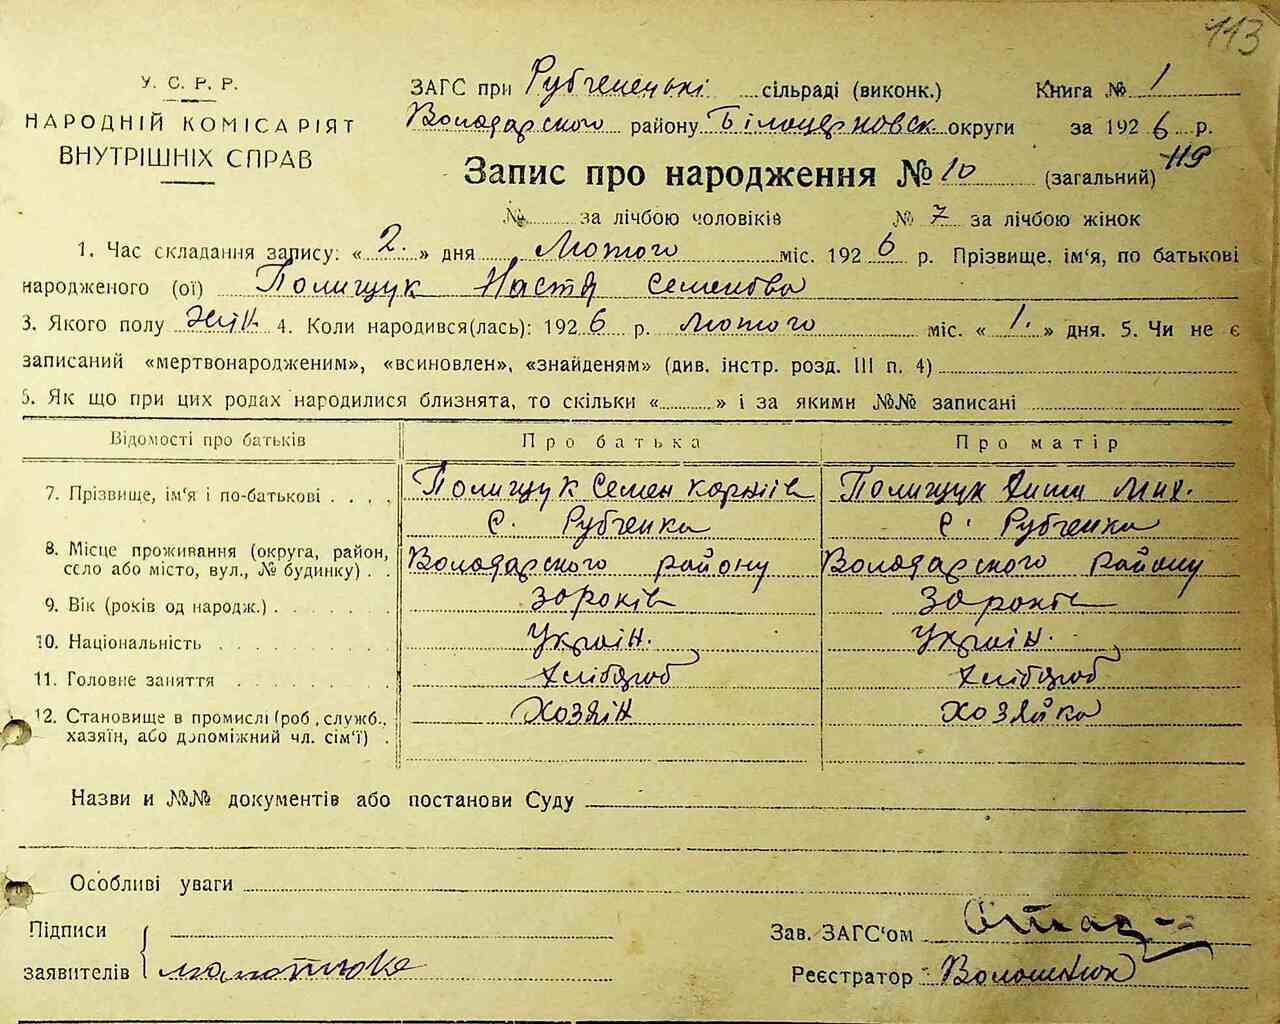 113
У. С. Р. Р.
НАРОДНІЙ КОМІСАРІЯТ
ВНУТРІШНІХ СПРАВ
ЗАГС при Рубченській сільраді (виконк.) Книга № 1
Володарского району Білоцерковск. округи за 1926 р.
Запис про народження № 10 (загальний) 119
№ за лічбою чоловіків № 7 за лічбою жінок
1. Час складання запису: «2.» дня Лютого міс. 1926 р. Прізвище, ім'я, по батькові
народженого (ої) Полищук Настя Семенова
3. Якого полу Жін. 4. Коли народився(лась): 1926 р. лютого міс. «1.» дня. 5. Чи не є
записаний «мертвонародженим», «всиновлен», «знайденям» (див. інстр. розд. III п. 4)
5. Як що при цих родах народилися близнята, то скільки «» і за якими №№ записані
Відомості про батьків Про батька Про матір
7. Прізвище, ім'я і по-батькові Полищук Семен Корніїв Полищук Мих.
с. Рубченка с. Рубченка
8. Місце проживання (округа, район,
село або місто, вул., № будинку) Володарского району Володарского району
9. Вік (років од народж.) 30 років 30 років
10. Національність Україн. Україн.
11. Головне заняття хлібороб хлібороб
12. Становище в промислі (роб., служб.,
хазяїн, або допоміжний чл. сім'ї) Хозяїн хозяйка
Назви и №№ документів або постанови Суду
Особливі уваги
Підписи
заявителів
Зав. ЗАГС'ом
Реєстратор Волошинюк